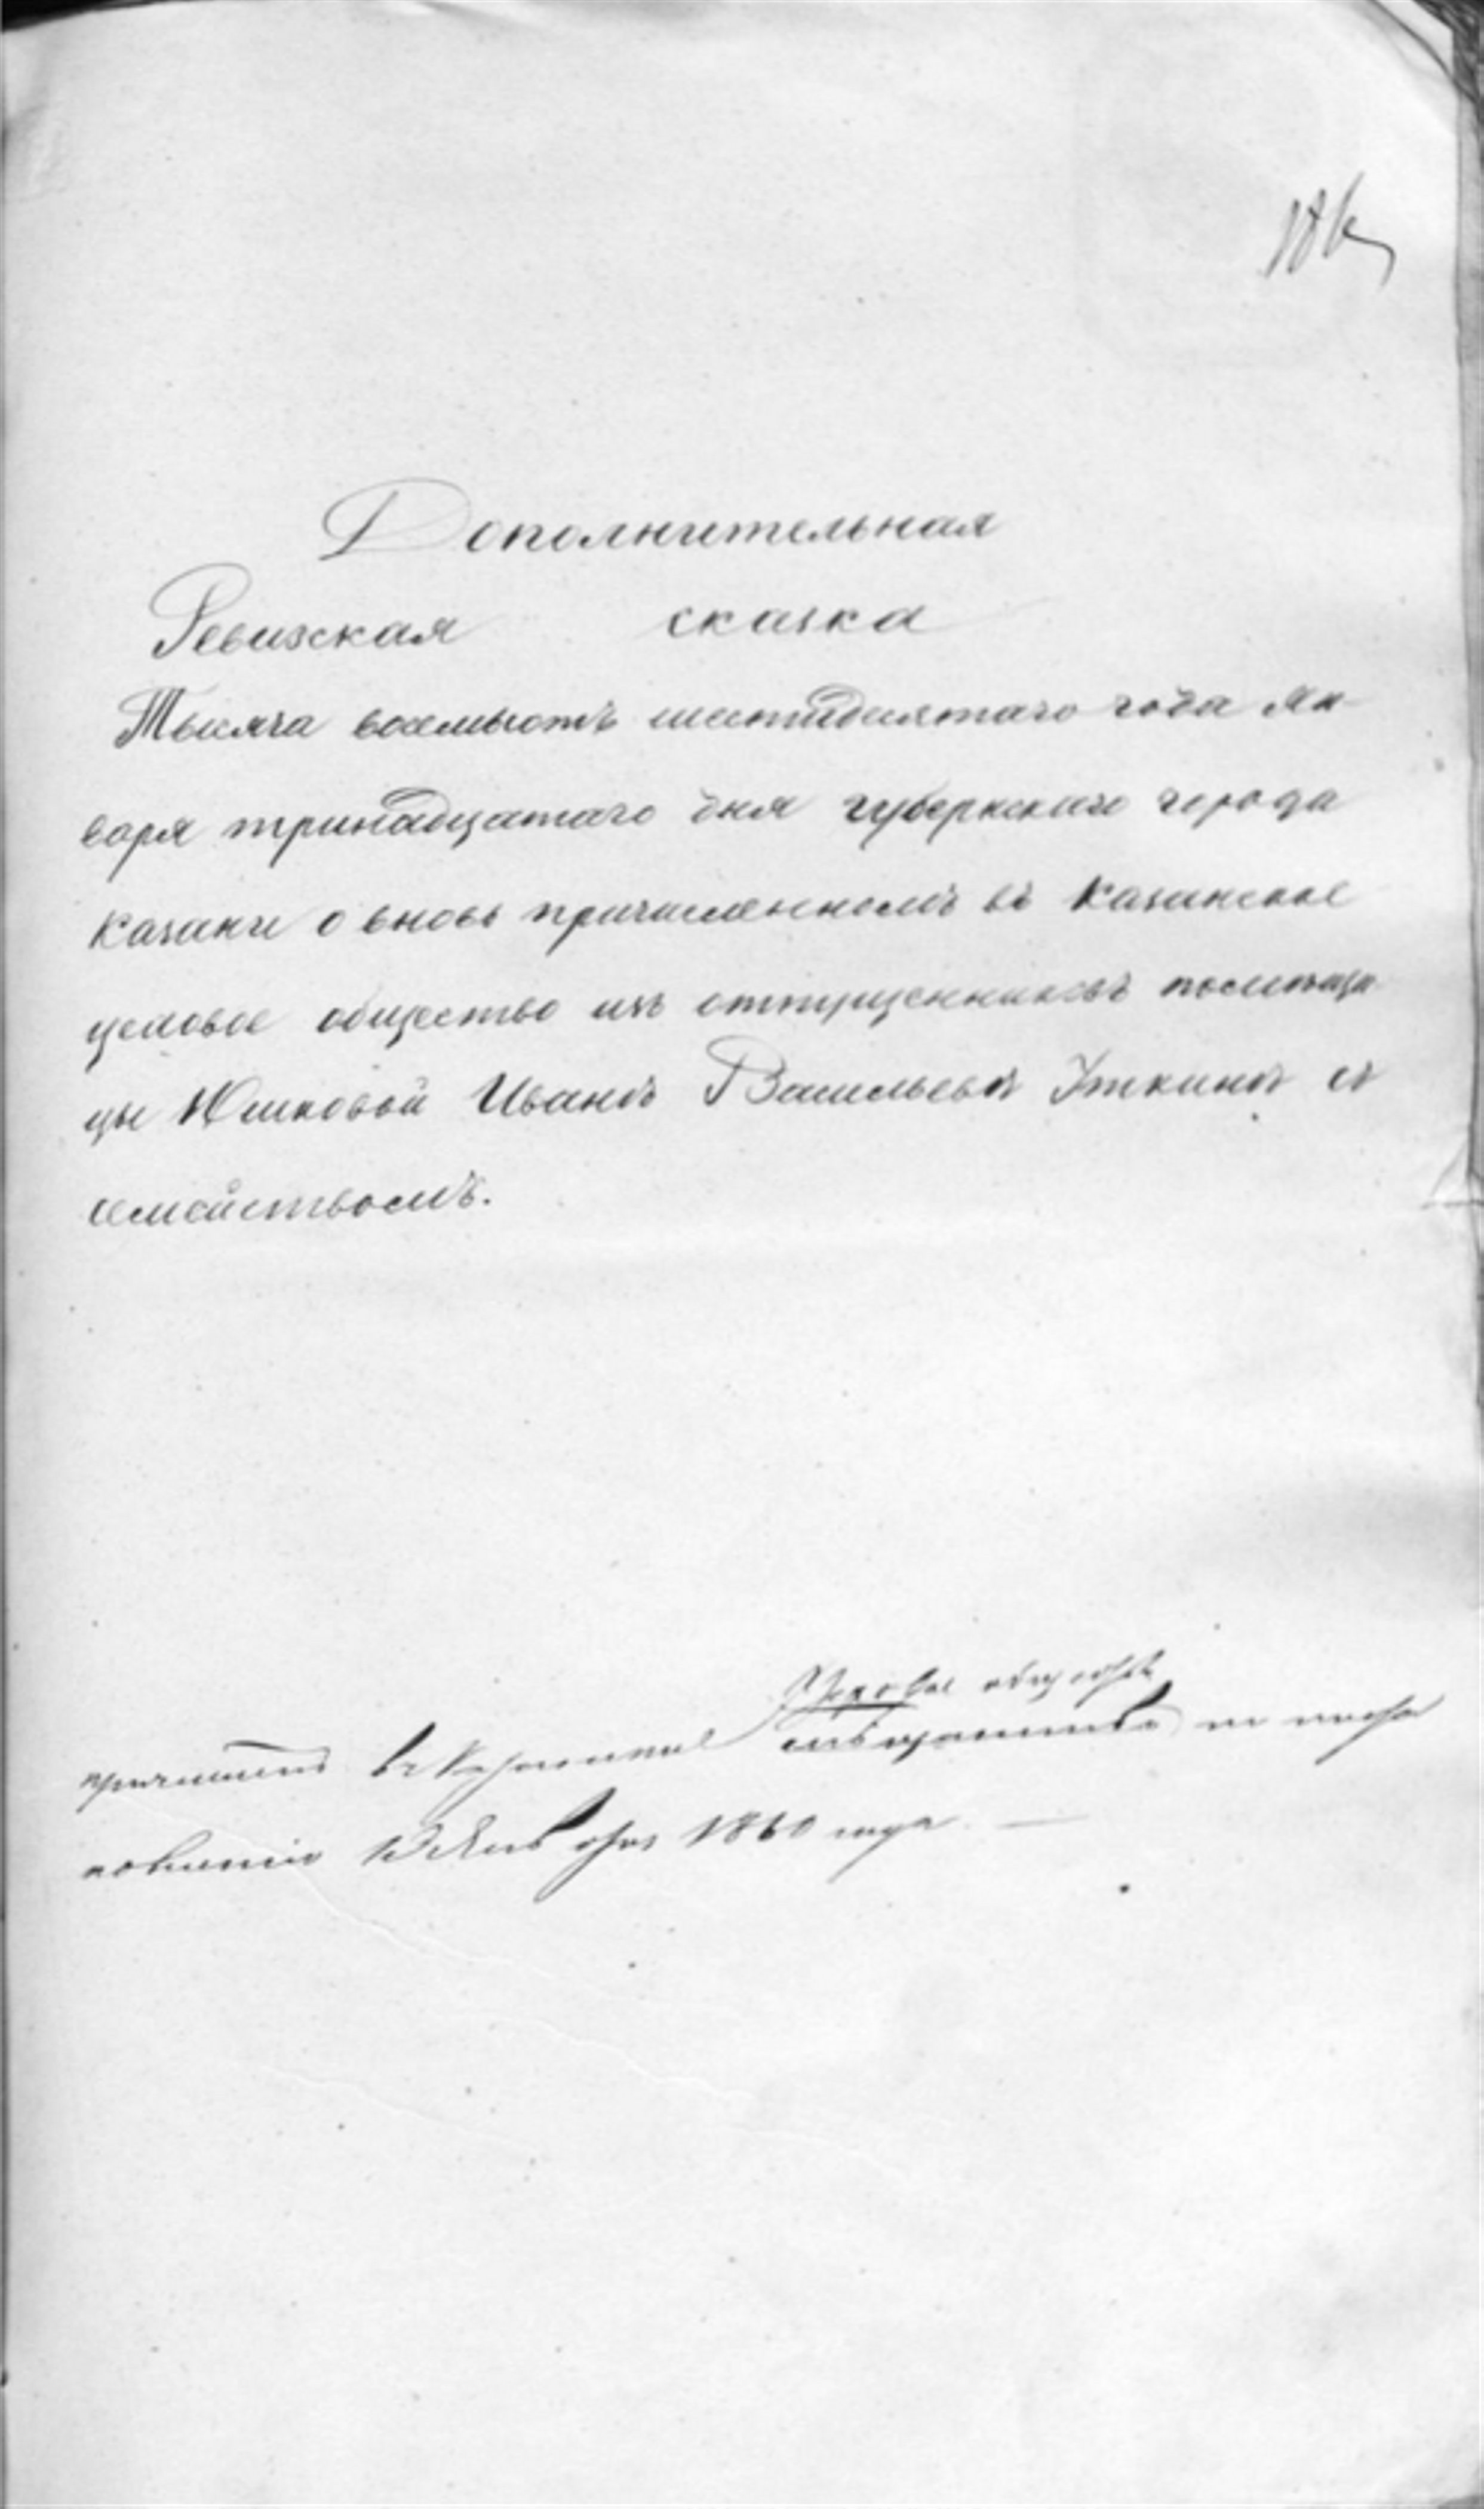 Дополнительная
Ревизская сказка
Тысяча восемьсотъ шестидесятаго года Ян-
варя тринадцатаго дня губернскаго города
Казани о вновь причисленномъ въ Казанское
цеховое общество изъ отпущенниковъ помещи
цы Юшковой Иванъ Васильевъ Уткинъ съ
семействомъ.
общество
въ
1860 года